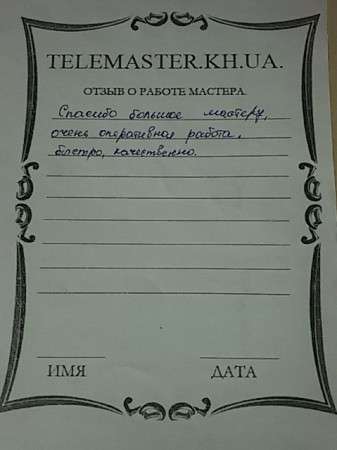 TELEMASTER.KH.UA.
ОТЗЫВ О РАБОТЕ МАСТЕРА.
Спасибо большое мастеру,
очень оперативная работа.
быстро, качественно.
ИМЯ ДАТА